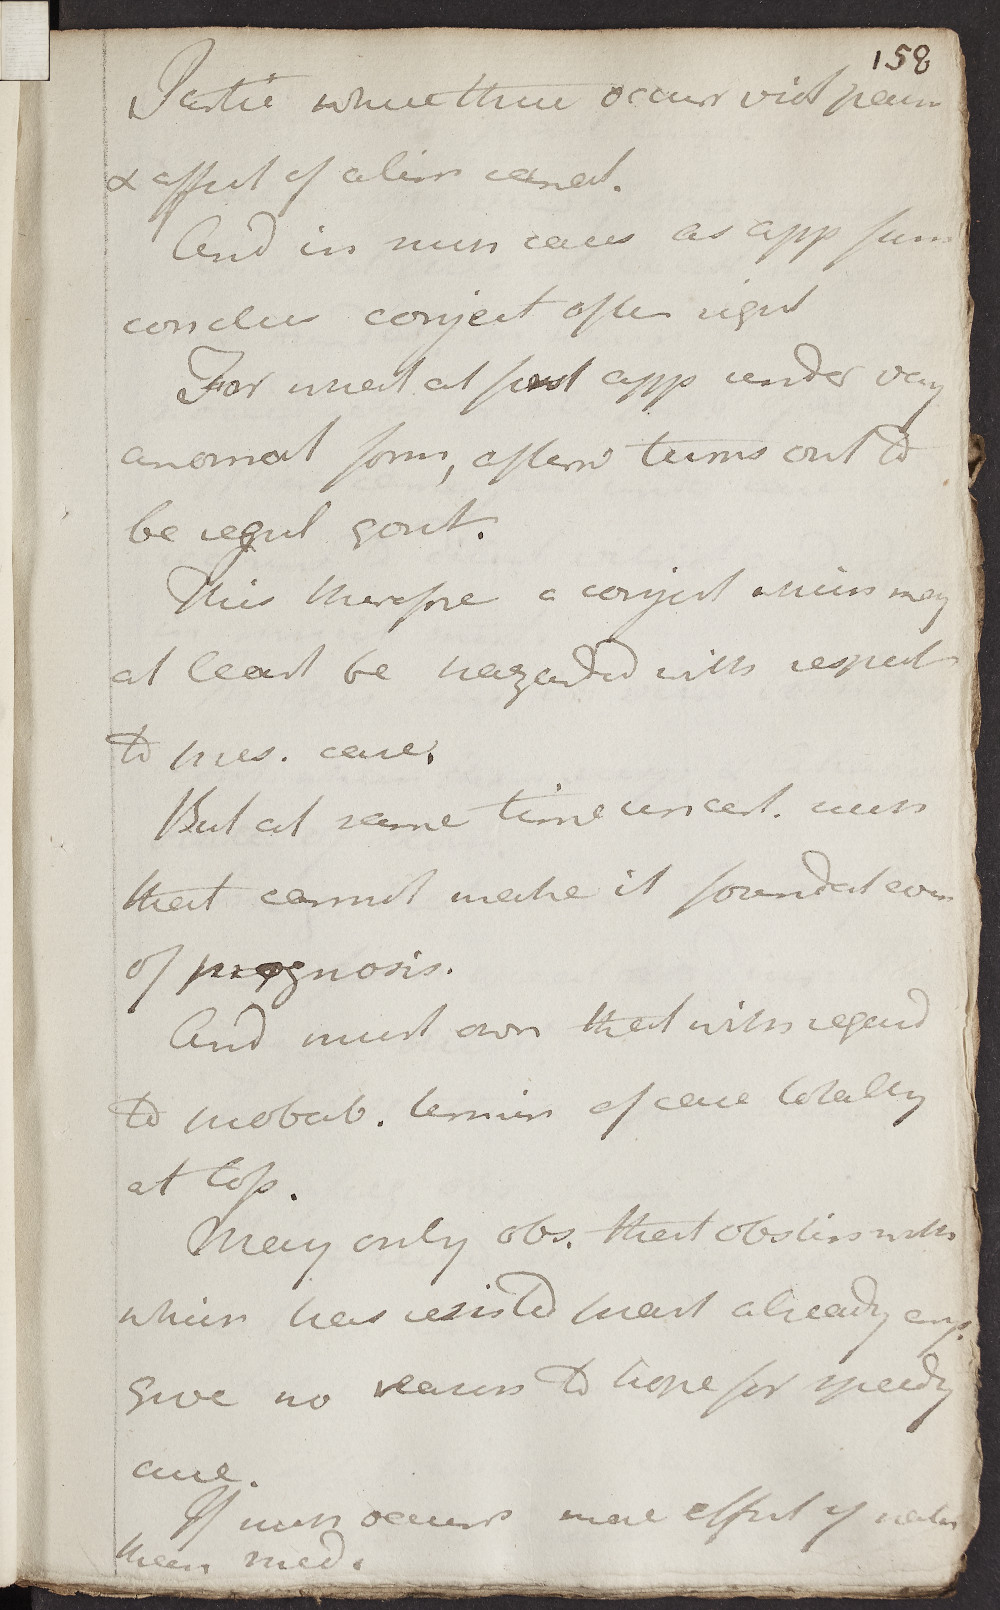 158
Partic where there occurs viol pain
& affect of alim canal.
And in such cases as app from
conclus conject often right
For what at first app under very
anomal form, afterw turns out to
be regul gout.
This therefore a conject which may
at least be hazarded with respect
to pres. case.
But at same time uncert. such
that cannot make it foundat even
of prognosis.
And must own that with regard
to probab. termin of case totally
at loss.
May only obs. that obstin with
which has resisted pract already emp.
give no reason to hope for speedy
cure.
If such occurs more effect of natur
than med.